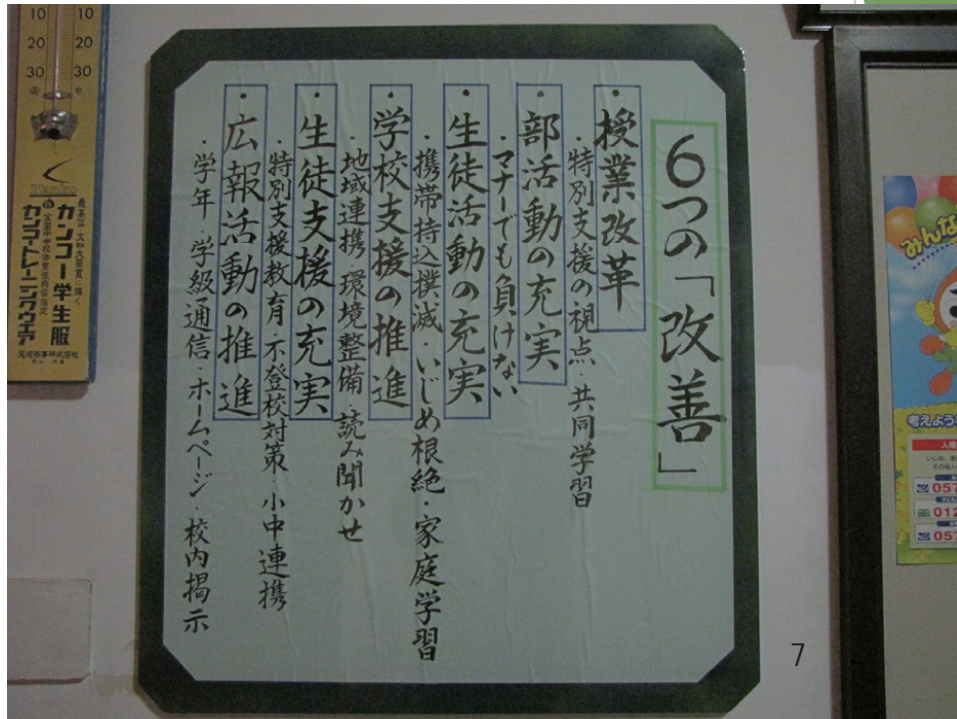 6つの「改善」
・授業改革
・特別支援の視点・共同学習
・部活動の充実
・マナーでも負けない
・生徒活動の充実
・携帯持込撲滅・いじめ根絶・家庭学習
・学校支援の推進
・地域連携・環境整備・読み聞かせ
・生徒支援の充実
・特別支援教育・不登校対策・小中連携
・広報活動の推進
・学年・学級通信・ホームページ・校内掲示
10 10
20 20
30 30
カンコー学生服
カンコートレーニングウエア
尾崎商事株式会社
みんな
考えよう
057
012
057
7